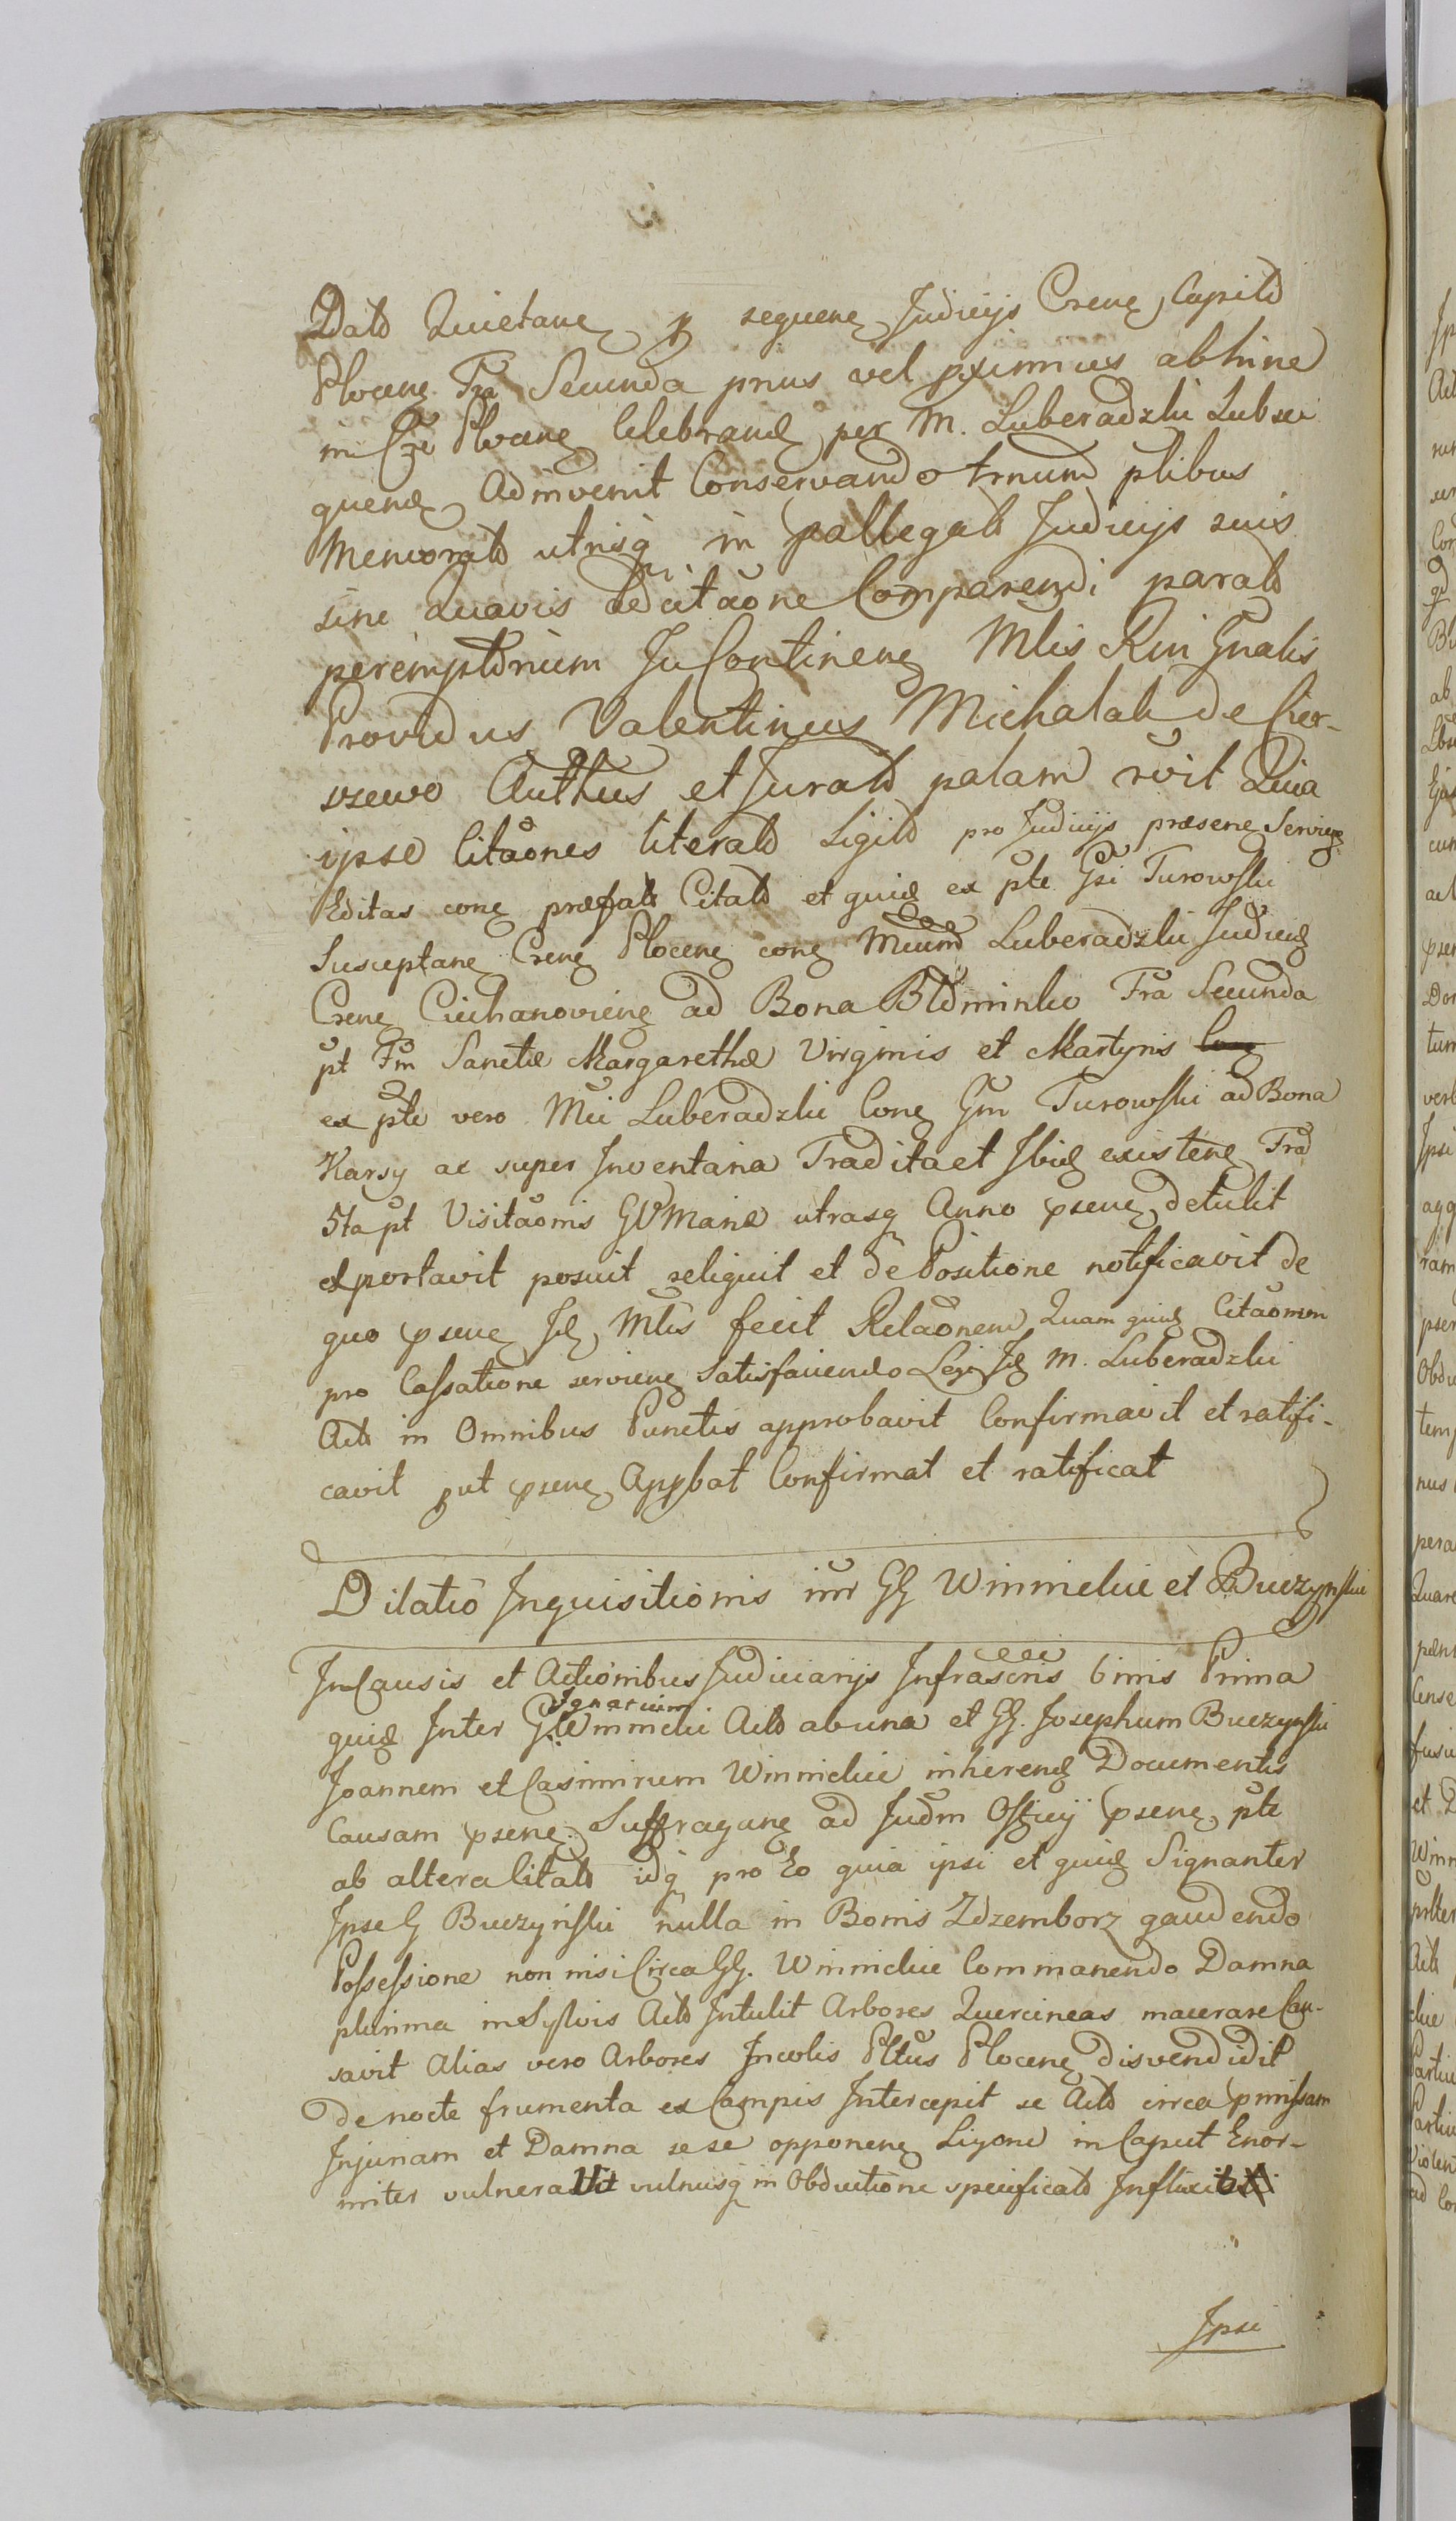 Datd Quietanę p sequenę Judicijs Crenę Capitd
Plocenę Fra Secunda prius vel pximius abhinc
in Cze Plocenę Celebrandę per M. Luberadzki Subse
quenę Adinvenit Conservando trnum ptibus
Memoratd utrisq̃ in pallegatd Judicijs suis
sine quavis adcitaõne Comparendi paratd
peremptõrium In Continenę Mlis Rni Gnalis
Providus Valentinus Michalak de Cier-
szewo Authus et Juratd palam rvit Quia
ipse Citaõnes literatd Sigild pro Judicijs præsenę Servienę
Editas conę præfatd Citatd et quidę ex pte Gsi Turowski
Susceptanę Crenę Plocenę conę Mcum Luberadzki Judicę
Crenę Ciechanovienę ad Bona Bldminko Fra Secunda
pt Fm Sanctæ Margarethæ Virginis et Martyris
ex pte vero Mci Luberadzki Conę Gm Turowski ad Bona
Karsy ac super Inventaria Tradita et Ibidę existenę Fra
5ta pt Visitaõnis GVMariæ utrasq Anno psenę detulit
exportavit posuit reliquit et de Positione notificavit de
quo psenę Idę Mlis fecit Relaõnem Quam quidę Citaõnem
pro Cassatione servienę Satisfaciendo Legi Idę M. Luberadzki
Actd in Omnibus Punctis approbavit Confirmavit et ratifi-
cavit put psenę Appbat Confirmat et ratificat
Dilatio Inquisitionis inr GG Winnickie et Buczynskie
In Causis et Actionibus Judiciarijs Infrascris binis Prima
quidę Inter G. Ignatium Winnicki Actd ab una et GG. Josephum Buczynski
Joannem et Casimirum Winnickie inhærendę Documentis
Causam psenę Suffraganę ad Judm Offcij psenę pte
ab altera Citatd idq pro Eo quia ipsi et quidę Signanter
Ipse G Buczynski nulla in Bonis Zdzemborz gaudendo
Possessione non nisi Circa GG. Winnickie Commanendo Damna
plurima in Sylvis Actd Intulit Arbores Quercineas macerare Cau-
savit Alias vero Arbores Incolis Pltus Plocenę disvendidit
De nocte frumenta ex Campis Intercepit se Actd circa pmissam
Injuriam et Damna sese opponenę Ligone in Caput Enor-
miter vulneravit vulnusq in Obductione specificatd Inflixit
Ipse